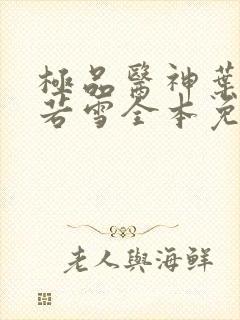 極品醫神葉
若雪全本免
老人與海鮮